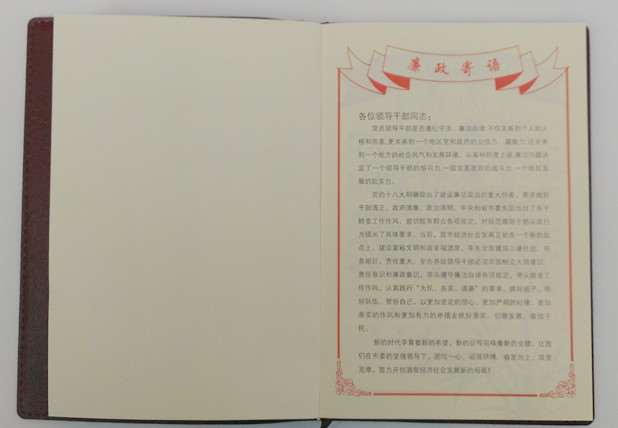 廉政寄语
各位领导干部同志：
党员领导干部是否遵纪守法、廉洁自律，不仅关系到个人的人
格和形象，更关系到一个地区党和政府的公信力、凝聚力，还关系
到一个地方的社会风气和发展环境。从某种程度上讲，廉洁问题决
定了一个领导干部的感召力、一级党委政府的战斗力、一个地区发
展的软实力。
党的十八大明确提出了建设廉洁政治的重大任务，要求做到
干部清正、政府清廉、政治清明。中央和省市委先后出台了关于
转变工作作风、密切联系群众各项规定，对规范领导干部从政行
为提出了具体要求。当前，我市经济社会发展正处在一个新的起
点上，建设富裕文明和谐幸福酒泉、率先全面建成小康社会，任
务艰巨，责任重大。全市各级领导干部必须牢固树立大局意识、
责任意识和廉政意识，带头遵守廉洁自律各项规定，带头转变工
作作风，认真践行“为民、务实、清廉”的要求，抓好班子、带
好队伍、管好自己，以更加坚定的信心、更加严明的纪律、更加
务实的作风和更加有力的举措去抓好落实、引领发展、取信于
民。
新的时代孕育着新的希望，新的征程召唤着新的业绩。让我
们在市委的坚强领导下，团结一心、顽强拼搏、奋发向上、攻坚
克难，努力开创酒泉经济社会发展新的局面！